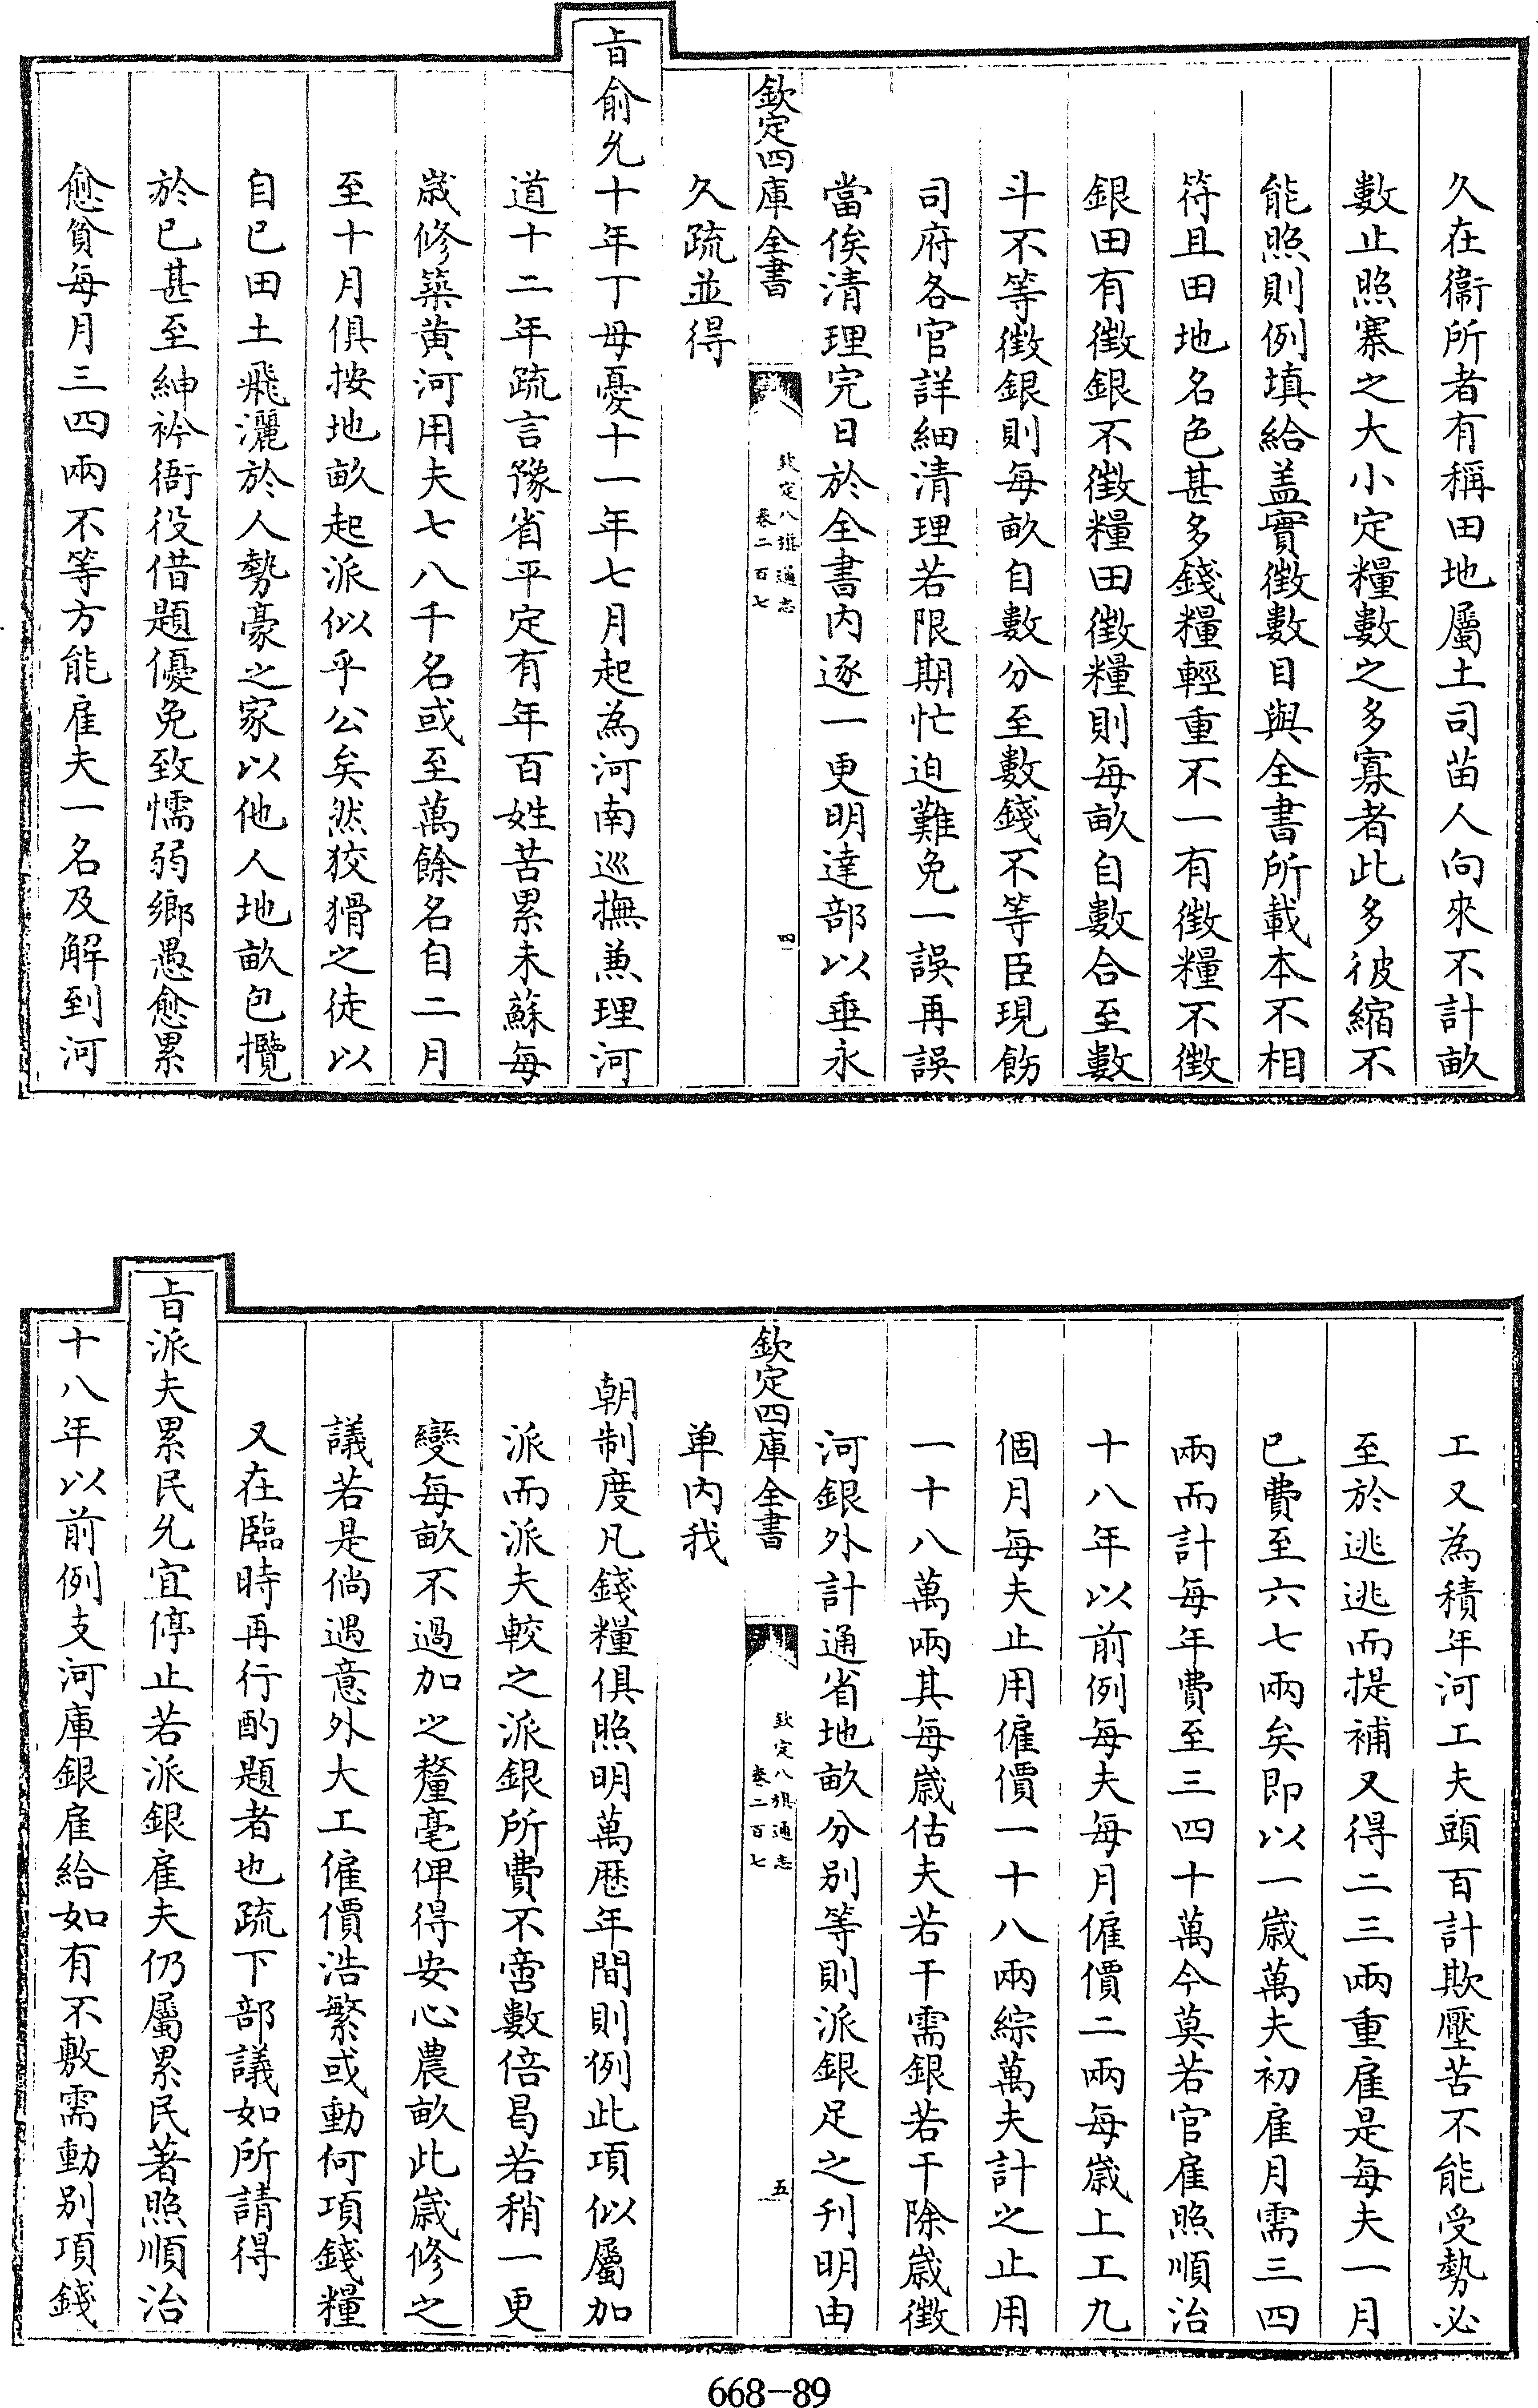 久在衞所者有稱田地屬土司苗人向來不計畝
數止照寨之大小定糧數之多寡者此多彼縮不
能照則例填給盖實徴數目與全書所載本不相
符且田地名色甚多錢糧輕重不一有徴糧不徴
銀田有徴銀不徴糧田徴糧則每畝自數合至數
斗不等徴銀則每畝自數分至數錢不等臣現飭
司府各官詳細清理若限期忙迫難免一誤再誤
當俟清理完日於全書内逐一更明達部以垂永
久疏並得
欽定四庫全書
欽定八旗通志
卷二百七
四
旨俞允十年丁母憂十一年七月起為河南巡撫兼理河
道十二年疏言豫省平定有年百姓苦累未蘇每
歳修築黄河用夫七八千名或至萬餘名自二月
至十月俱按地畝起派似乎公矣然狡猾之徒以
自已田土飛灑於人勢豪之家以他人地畝包攬
於已甚至紳衿衙役借題優免致懦弱鄉愚愈累
愈貧每月三四兩不等方能雇夫一名及解到河
工又為積年河工夫頭百計欺壓苦不能受勢必
至於逃逃而提補又得二三兩重雇是每夫一月
已費至六七兩矣即以一歳萬夫初雇月需三四
兩而計每年費至三四十萬今莫若官雇照順治
十八年以前例每夫每月僱價二兩每歳上工九
個月每夫止用僱價一十八兩綜萬夫計之止用
一十八萬兩其每歳估夫若干需銀若干除歳徴
河銀外計通省地畝分别等則派銀足之刋明由
单内我
欽定四庫全書
欽定八旗通志
卷二百七
五
朝制度凡錢糧俱照明萬厯年間則例此項似屬加
派而派夫較之派銀所費不啻數倍曷若稍一更
變每畝不過加之釐毫俾得安心農畝此歳修之
議若是倘遇意外大工僱價浩繁或動何項錢糧
又在臨時再行酌題者也疏下部議如所請得
旨派夫累民允宜停止若派銀雇夫仍屬累民著照順治
十八年以前例支河庫銀雇給如有不敷需動别項錢
668-89